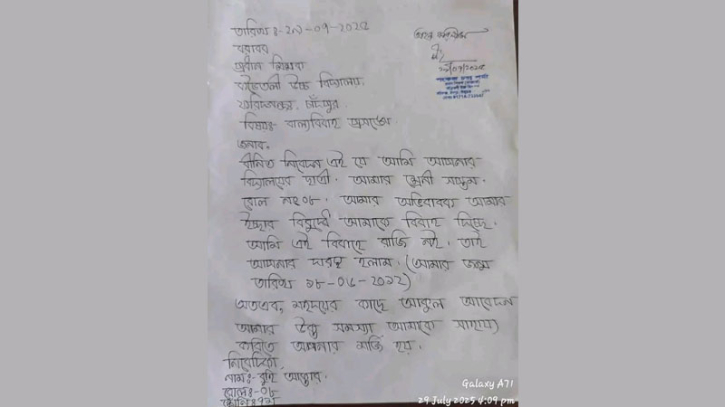 তারিখঃ-২৯-০৭-২০২৫
বরাবর
প্রধান শিক্ষক
উচ্চ বিদ্যালয়
চাঁদপুর।
বিষয়ঃ- বাল্যবিবাহ প্রসঙ্গে
জনাব,
বিনীত নিবেদন এই যে আমি আপনার
বিদ্যালয়ের ছাত্রী। আমার শ্রেণী সপ্তম।
রোল নং ০৮। আমার অভিবাবক আমার
ইচ্ছার বিরুদ্ধে আমাকে বিবাহ দিচ্ছে
আমি এই বিবাহে রাজি নই। তাই
আপনার দারস্থ হলাম। (আমার জন্ম
তারিখ ১৮-০৬-২০১২)
অতএব, মহাদয়ের কাছে আকুল আবেদন
আমার উক্ত সমস্যা আমাকে সাহায্য
করিতে আপনার মর্জি হয়।
নিবেদিকা
নামঃ- আক্তার
রোলঃ-০৮
শ্রেণিঃ ৭ম
২৯/০৭/২০২৫
Galaxy A71
29 July 2025 4:09 pm